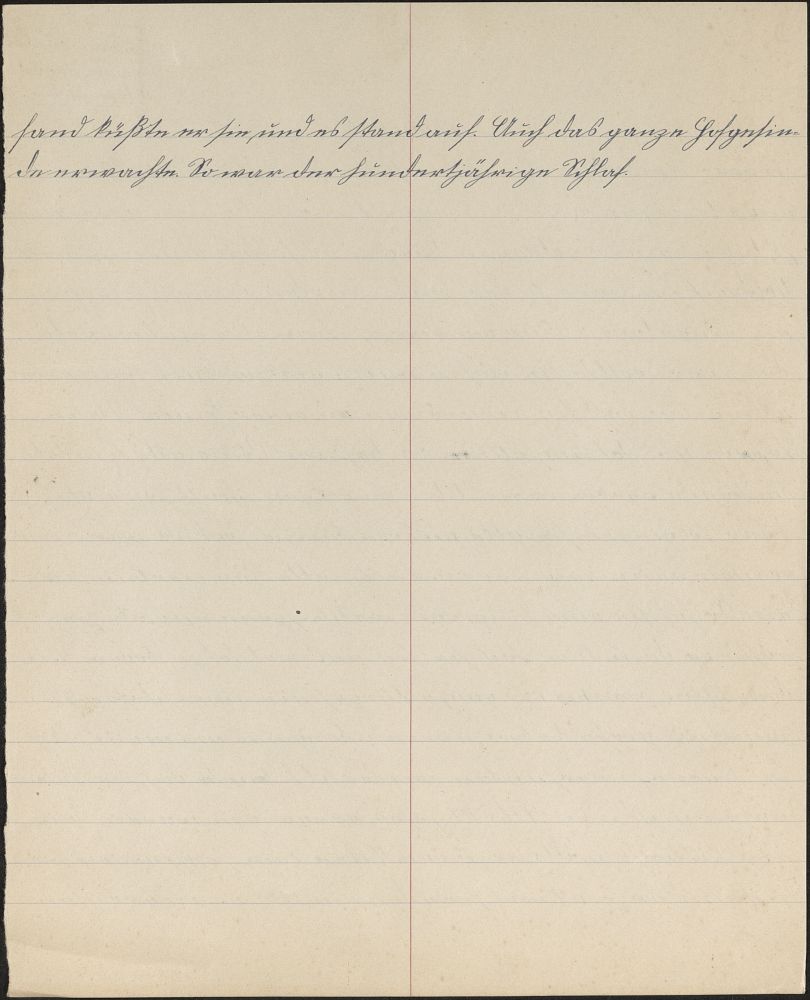 fand küßte er sie, und es stand auf. Auch das ganze Hofgesin-
de erwachte. So war der hundertjährige Schlaf.